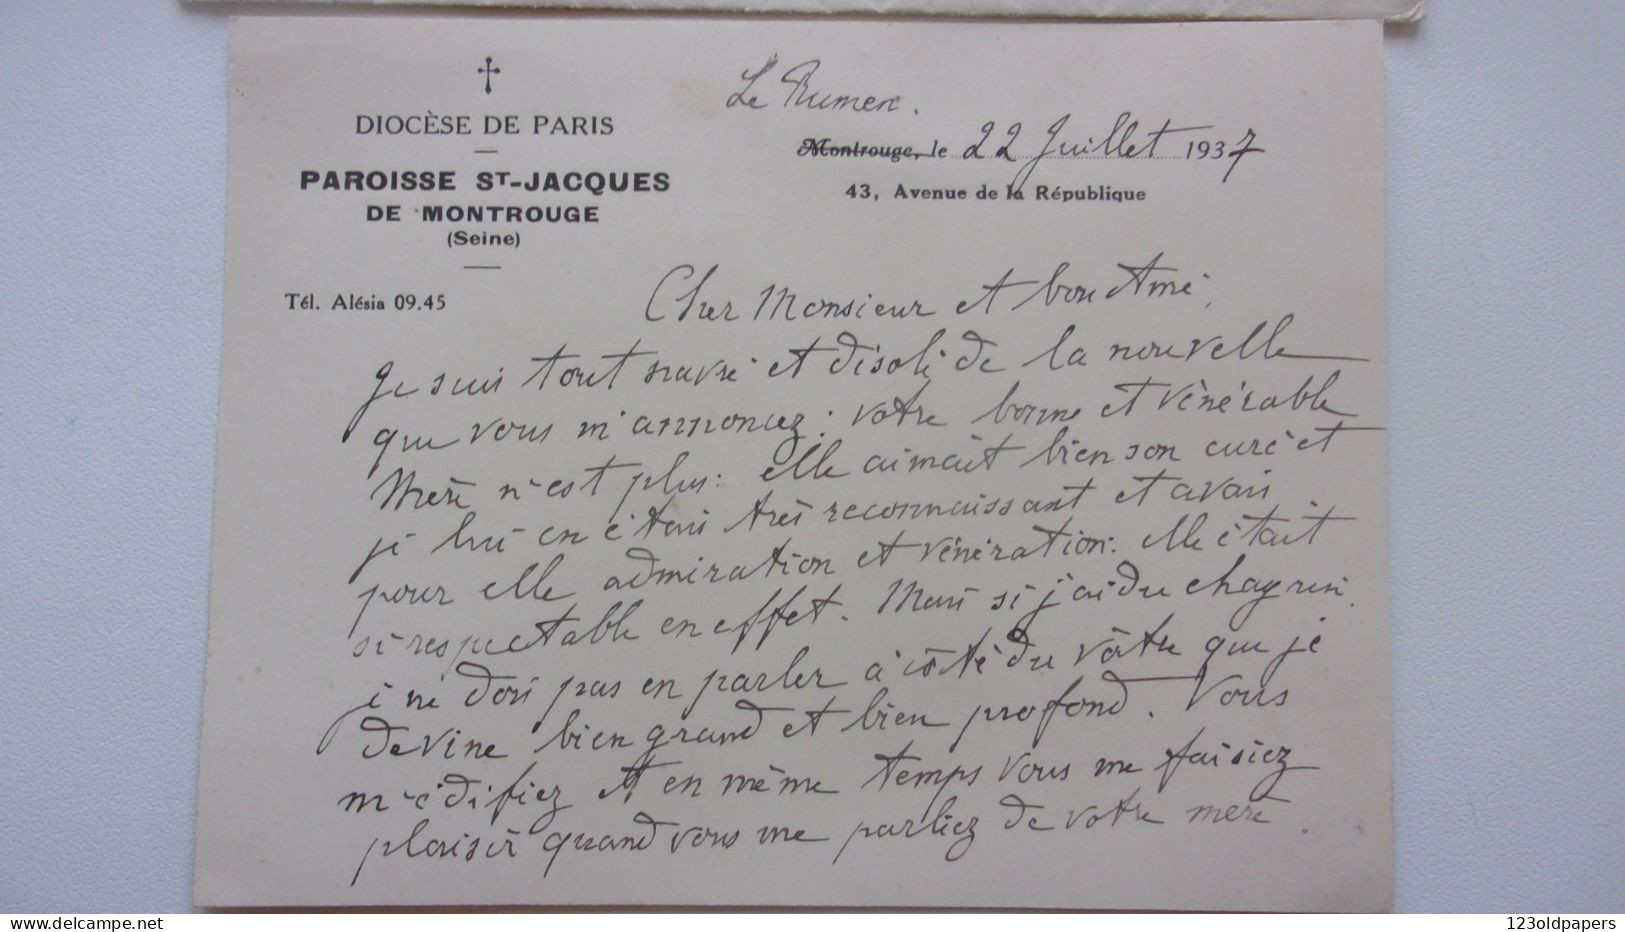 DIOCÈSE DE PARIS
PAROISSE ST-JACQUES
DE MONTROUGE
(Seine)
Tél. Alésia 09.45
Le Rumen.
Montrouge, le 22 Juillet 1937
43, Avenue de la République
Cher Monsieur et bon Ami,
Je suis tout navré et désolé de la nouvelle
que vous m'annoncez : votre bonne et vénérable
Mère n'est plus : elle aimait bien son curé et
je lui en étais très reconnaissant et avais
pour elle admiration et vénération : elle était
si respectable en effet. Mais si j'ai du chagrin
je ne dois pas en parler à côté du vôtre que je
devine bien grand et bien profond. Vous
m'édifiez et en même temps vous me faisiez
plaisir quand vous me parliez de votre mère.
delcampe.net
123oldpapers